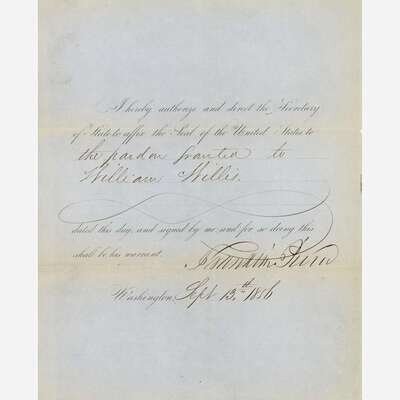 I hereby authorize and direct the Secretary
of State to affix the Seal of the United States to
the pardon granted to
William Willis.
dated this day, and signed by me and for so doing this
shall be his warrant.
Franklin Pierce
Washington, Sept 13.th 1856